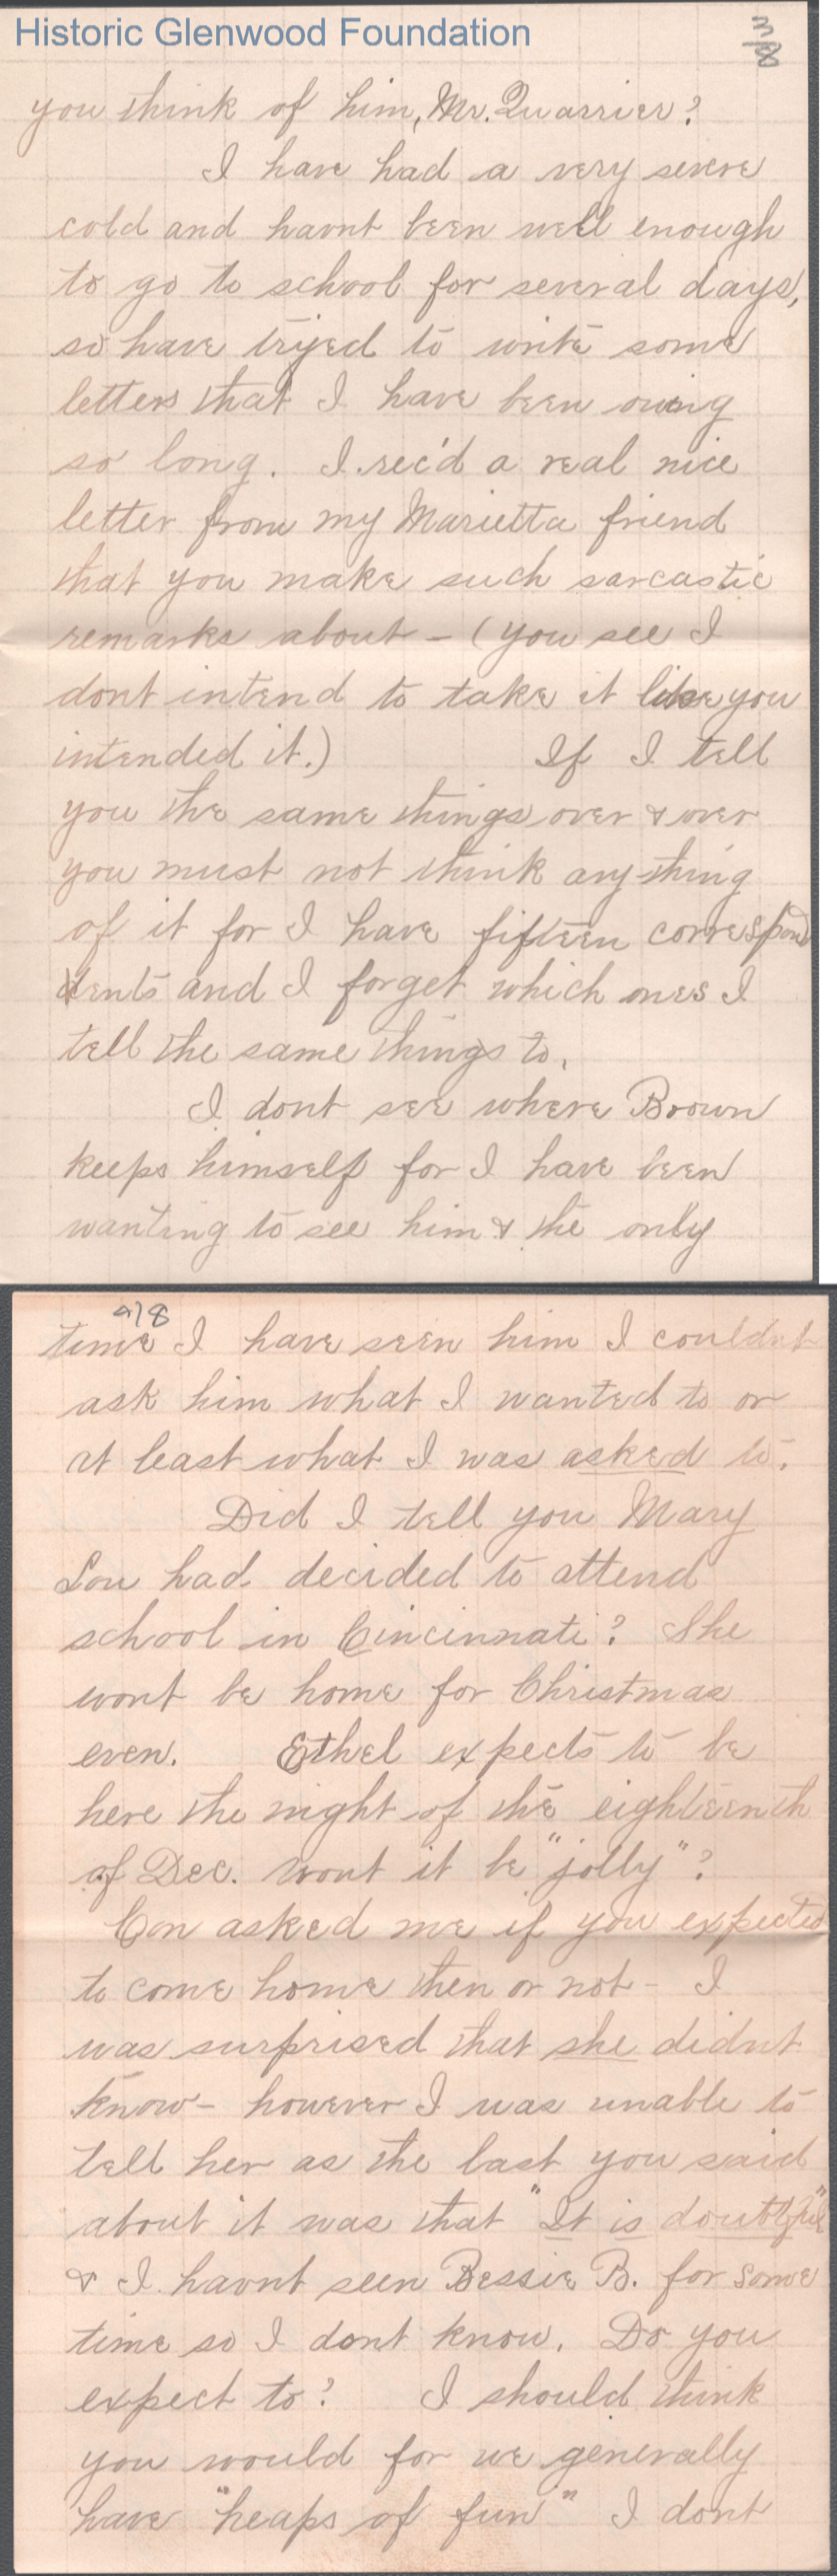 Historic Glenwood Foundation
3/8
you think of him, Mr. Quarrier?
I have had a very severe
cold and havnt been well enough
to go to school for several days,
so have tryed to write some
letters that I have been owing
so long. I rec'd a real nice
letter from my Marietta friend
that you make such sarcastic
remarks about - (you see I
dont intend to take it like you
intended it.) If I tell
you the same things over & over
you must not think anything
of it for I have fifteen correspon
dents and I forget which ones I
tell the same things to.
I dont see where Brown
keeps himself for I have been
wanting to see him & the only
4/8
time I have seen him I couldnt
ask him what I wanted to or
at least what I was asked to.
Did I tell you Mary
Lou had decided to attend
school in Cincinnati? She
wont be home for Christmas
even. Ethel expects to be
here the night of the eighteenth
of Dec. wont it be "jolly"?
Con asked me if you expected
to come home then or not - I
was surprised that she didnt
know - however I was unable to
tell her as the last you said
about it was that "It is doubtful"
& I havnt seen Bessie B. for some
time so I dont know. Do you
expect to? I should think
you would for we generally
have "heaps of fun" I dont